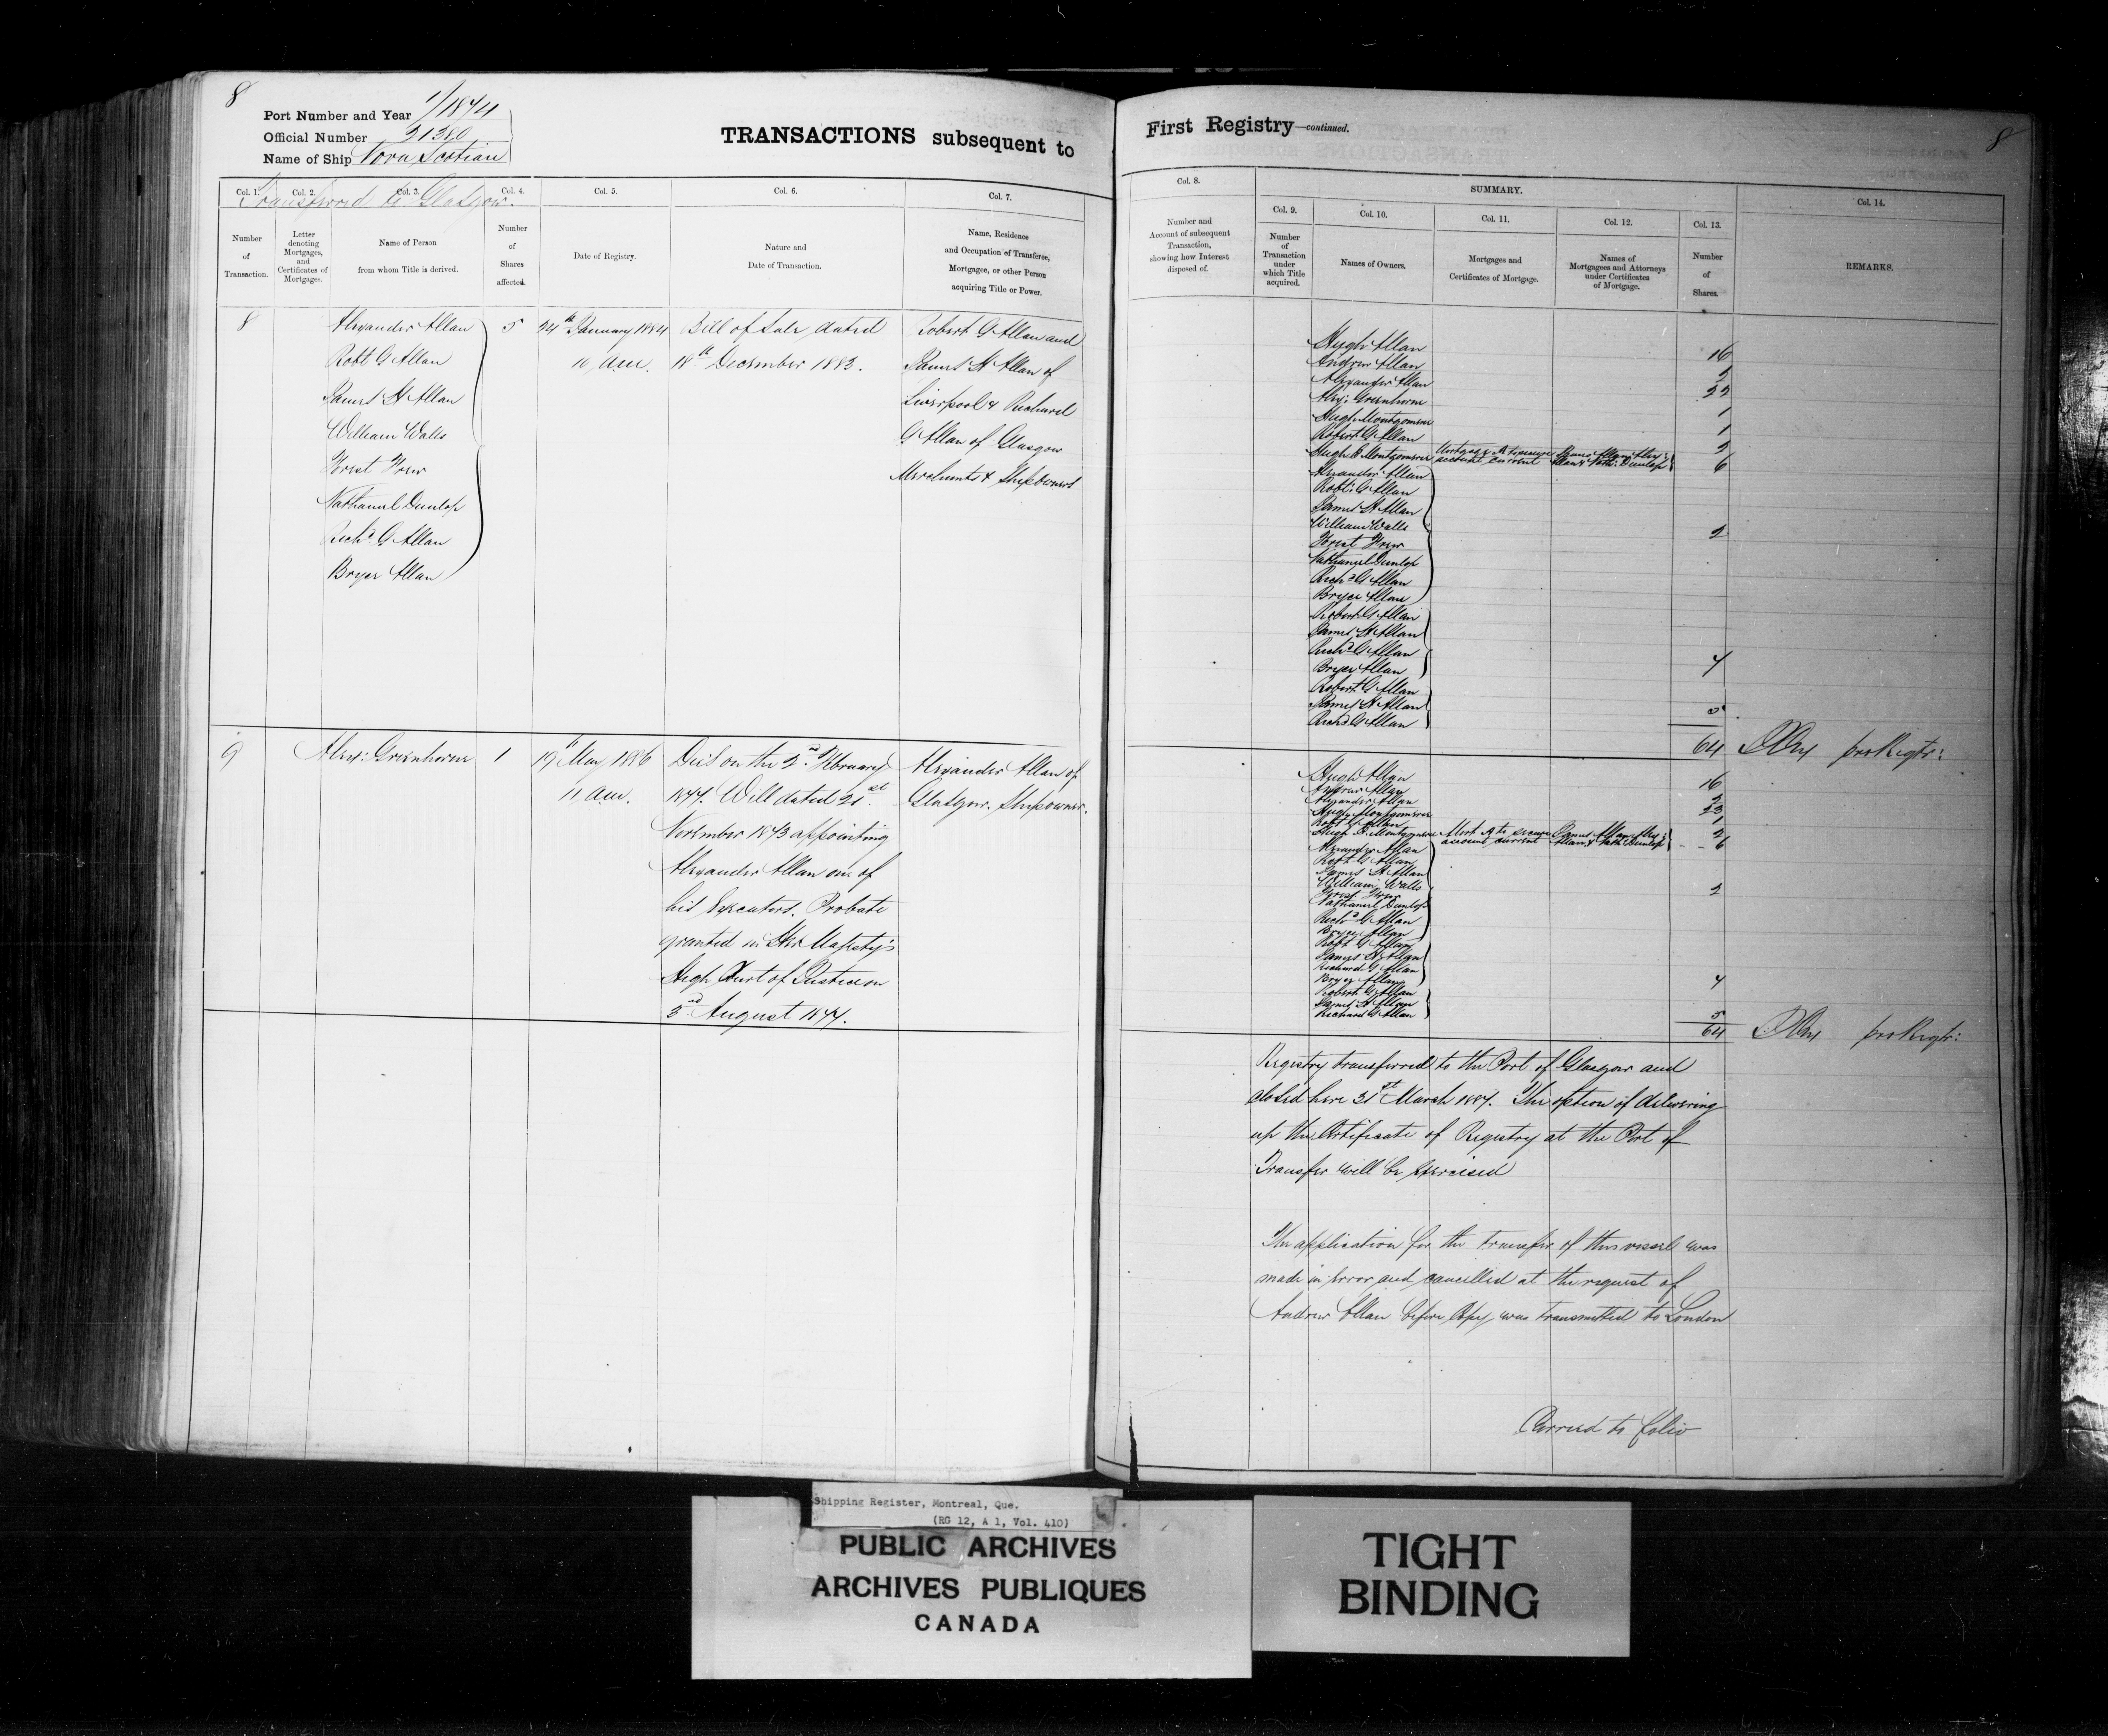 8
Port Number and Year 1/1874
Official Number
Name of Ship Nova Scotian
TRANSACTIONS subsequent to
Transferred to Glasgow.
Col. 1. Col. 2. Col. 3. Col. 4. Col. 5. Col. 6. Col. 7.
Number of Transaction.
Letter denoting Mortgages, and Certificates of Mortgages.
Name of Person from whom Title is derived.
Number of Shares affected.
Date of Registry.
Nature and Date of Transaction.
Name, Residence and Occupation of Transferee, Mortgagee, or other Person acquiring Title or Power.
8
Alexander Allan
Robt G Allan
James H Allan
William Walls
Nathaniel Dunlop
Richd G Allan
Bryce Allan
5
24th January 1884
10 a.m.
Bill of Sale dated
18th December 1883.
Robert G Allan and
James H Allan of
Liverpool & Richard
G Allan of Glasgow
Merchants & Shipowners
9
Alexr: Greenhorne
1
19th May 1886
11 a.m.
Died on the 2nd February
1877. Will dated 21st
November 1873 appointing
Alexander Allan one of
his Executors. Probate
granted in Her Majesty's
High Court of Justice on
3rd August 1877.
Alexander Allan of
Glasgow. Shipowner.
First Registry—continued.
8
Col. 8. SUMMARY. Col. 14.
Col. 9. Col. 10. Col. 11. Col. 12. Col. 13.
Number and Account of subsequent Transaction, showing how Interest disposed of.
Number of Transaction under which Title acquired.
Names of Owners.
Mortgages and Certificates of Mortgage.
Names of Mortgagees and Attorneys under Certificates of Mortgage.
Number of Shares.
REMARKS.
Hugh Allan 16
Andrew Allan 5
Alexander Allan 22
Alex: Greenhorne 1
Hugh Montgomerie 1
Robert G Allan 2
Hugh B Montgomerie Mortgage A to secure account current James Allan, Alexr: Allan & Nath: Dunlop 6
Alexander Allan
Robt: G Allan
James H Allan
William Walls
2
Nathaniel Dunlop
Richd G Allan
Bryce Allan
Robert G Allan
James H Allan
Richd G Allan
Bryce Allan 4
Robert G Allan
James H Allan
Richd G Allan 5
64 pro Regtr:
Hugh Allan 16
Andrew Allan 5
Alexander Allan 23
Hugh Montgomerie 1
Robt G Allan 2
Hugh B. Montgomerie Mort A to secure account current James Allan, Alexr: Allan & Nath: Dunlop 6
Alexander Allan
Robt G Allan
James H Allan
William Walls
2
Nathaniel Dunlop
Richd G Allan
Bryce Allan
Robt G Allan
James H Allan
Richard G Allan
Bryce Allan 4
Robert G Allan
James H Allan
Richard G Allan 5
64 pro Regtr:
Registry transferred to the Port of Glasgow and
closed here 31st March 1887. The option of delivering
up the Certificate of Registry at the Port of
Transfer will be exercised
The application for the transfer of this vessel was
made in error and cancelled at the request of
Andrew Allan before Copy was transmitted to London
Carried to folio
Shipping Register, Montreal, Que.
(RG 12, A 1, Vol. 410)
PUBLIC ARCHIVES
ARCHIVES PUBLIQUES
CANADA
TIGHT
BINDING